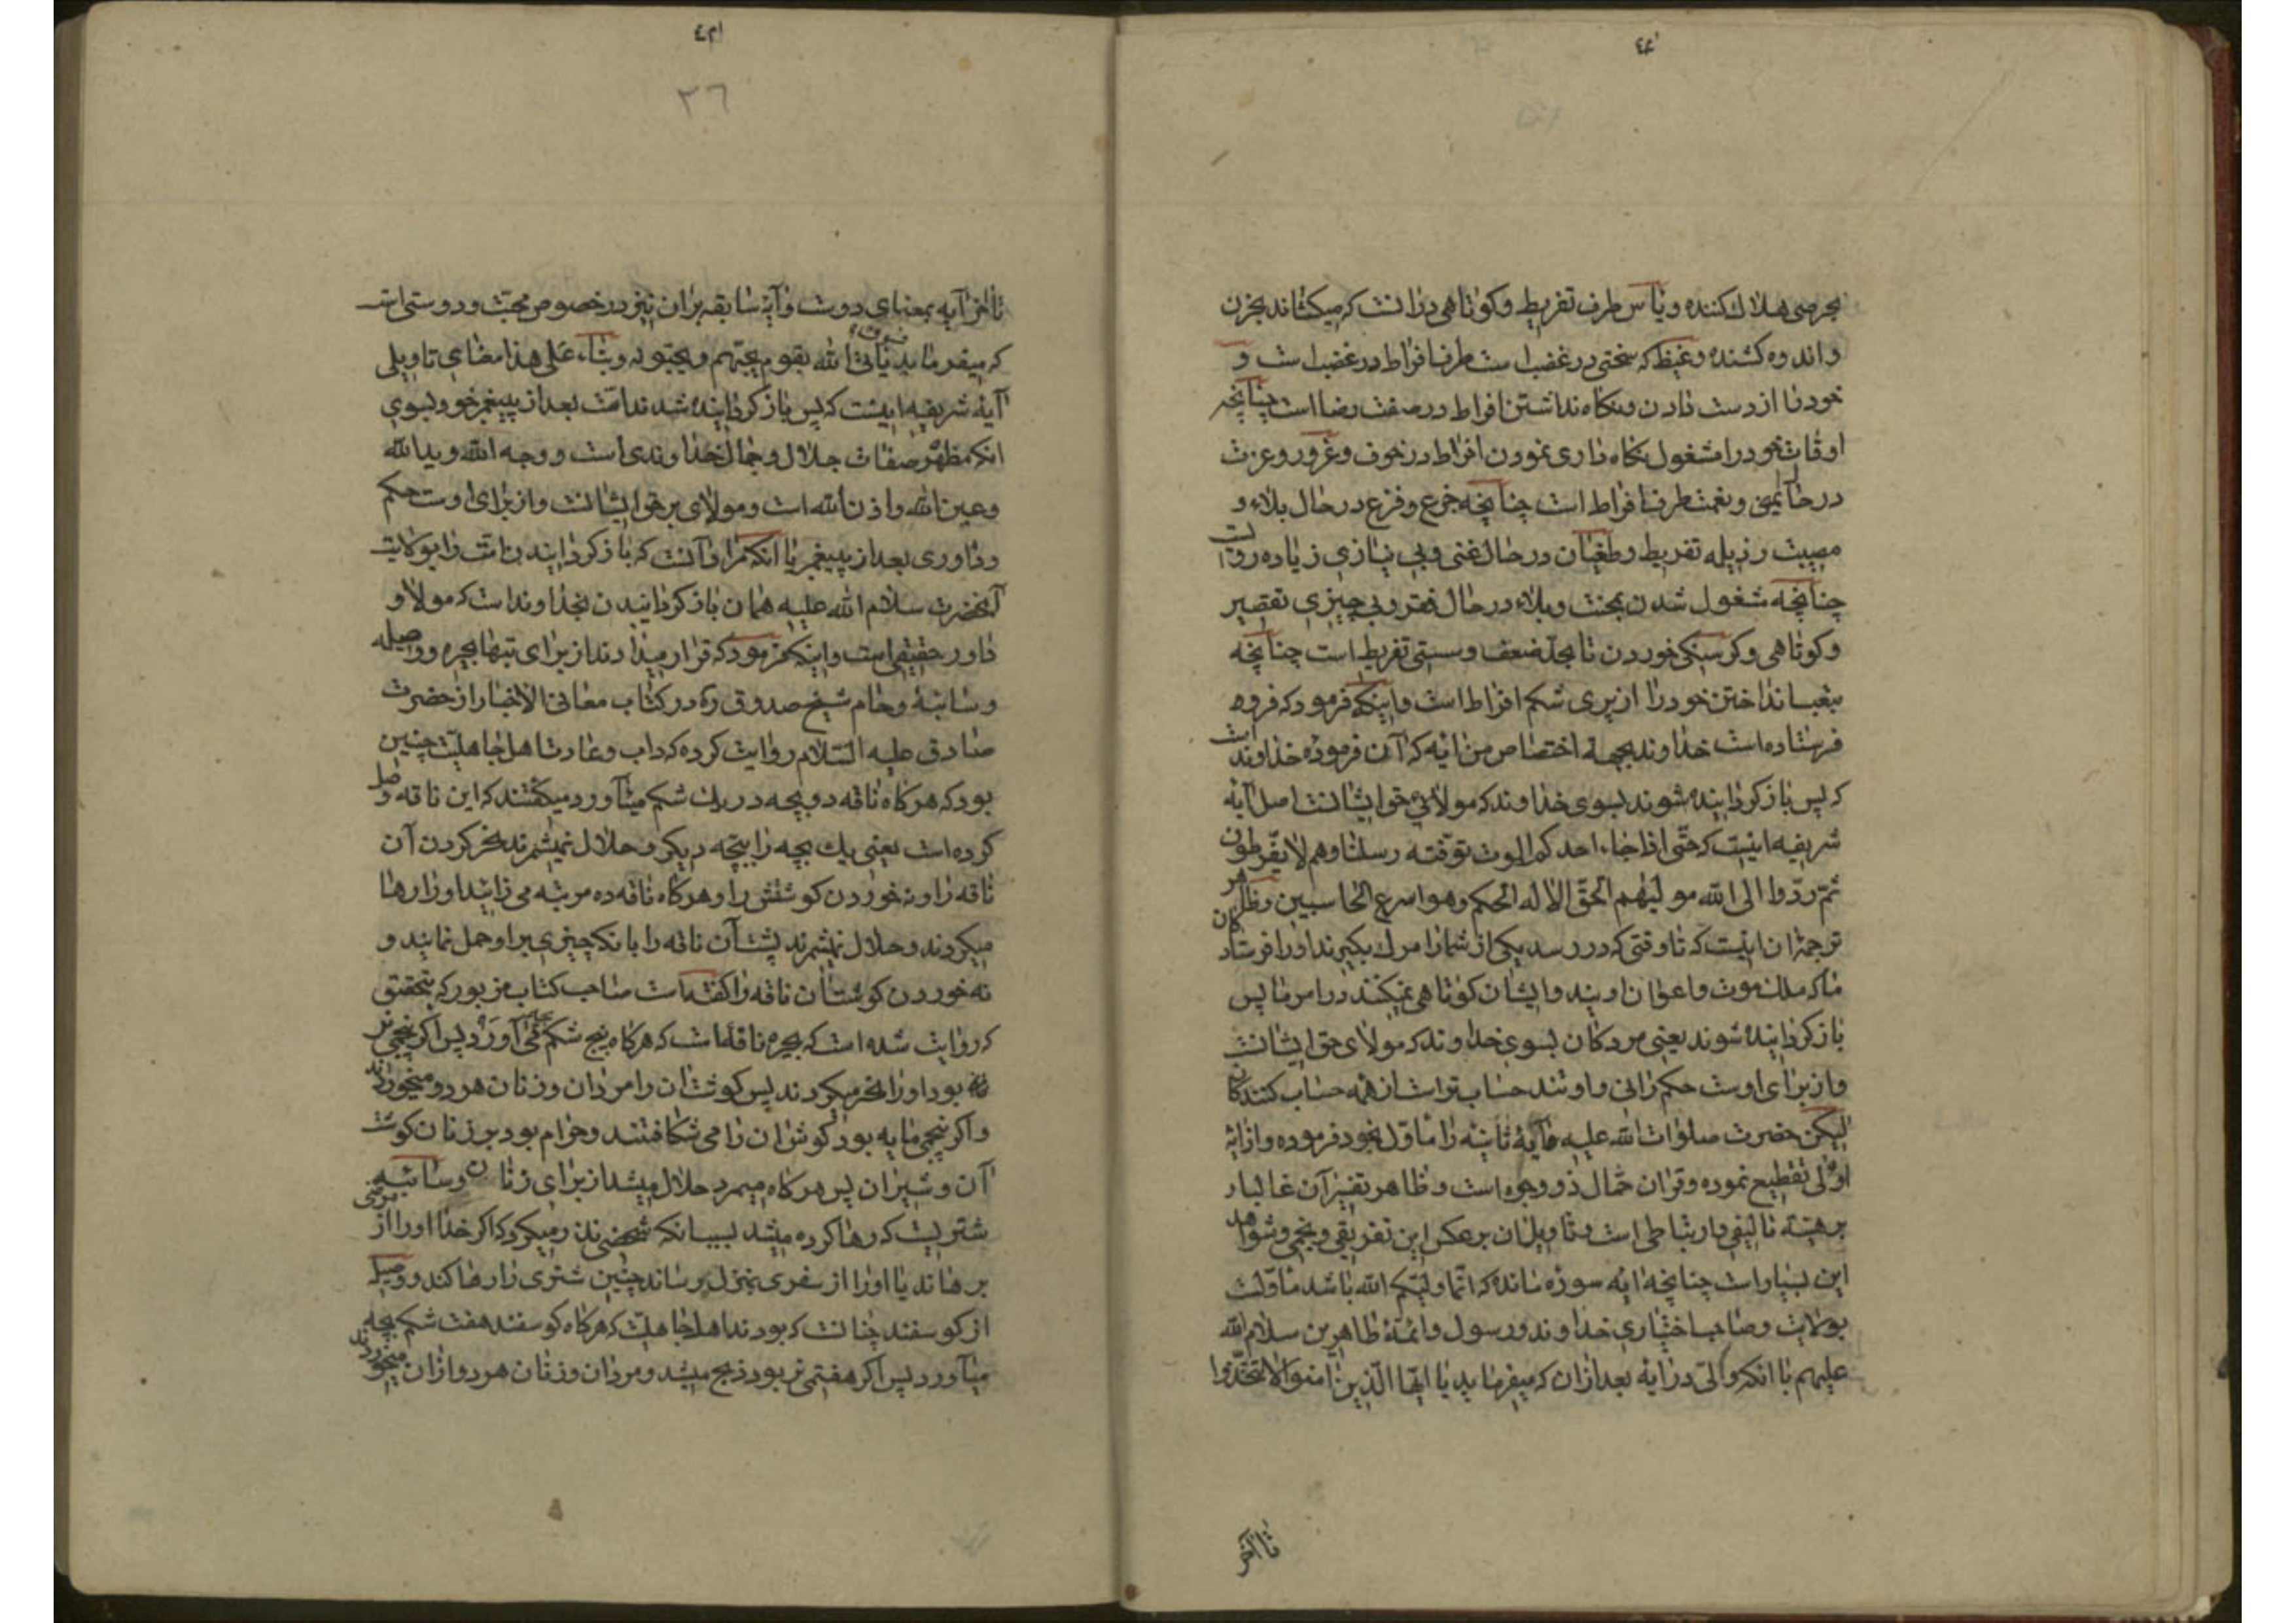 ٤٠
بحرصی هلاك كننده و یأس طرف تفریط و كوتاهی درانست كه میكشاند بحزن
و اندوه كشنده و غیظ كه سختی در غضب است طرف افراط در غضب است و
خود را از دست دادن و نكاه نداشتن افراط در صفت رضا است چنانچه
اوقات خود را مشغول نكاه داری نمودن افراط در خوف و غرور و عزت
در حال ایمنی و نعمت طرف افراط است چنانچه جزع و فزع در حال بلاء و
مصیبت رزیله تفریط و طغیان در حال غنی و بی نیازی زیاده روی است
چنانچه مشغول شدن بمحنت و بلاء در حال فقر و بی چیزی تقصیر
و كوتاهی و كرسنكی خوردن تا بحد ضعف و سستی تفریط است چنانچه
بتعب انداختن خود را از پری شكم افراط است و اینكه فرمود كه فرود
فرستاده است خداوند بجهة اختصاص من آیه كه آن فرموده خداوند است
كه پس باز كردانیده شوند بسوی خداوند كه مولای حق ایشانست اصل آیه
شریفه اینست كه حتی اذا جاء احدكم الموت توفته رسلنا و هم لا یفرطون
ثم ردوا الی الله مولیهم الحق الا له الحكم و هو اسرع الحاسبین و ظاهر
ترجمه ان اینست كه تا وقتی كه در رسد یكی از شما را مرك بكیرند او را فرستادكان
ما كه ملك موت و اعوان اویند و ایشان كوتاهی نمیكنند در امر ما پس
باز كردانیده شوند یعنی مردكان بسوی خداوند كه مولای حق ایشانست
و از برای اوست حكم رانی و اوتند حساب تر است از همه حساب كنندكان
لیكن حضرت صلوات الله علیه آیه ثانیه را ماول بخود فرموده و از آیه
اولی تقطیع نموده و قران حمال ذو وجوه است و ظاهر تفسیر آن غالبا بر
بر هیئة تالیفی و ارتباطی است و تاویل ان بر عكس این تفریقی و نجمی و شواهد
این بسیار است چنانچه آیه سوره مائده كه انما ولیكم الله باشد ماولست
بولایت و صاحب اختیاری خداوند و رسول و ائمهٔ طاهرین سلام الله
علیهم با انكه والی در آیه بعد ازان كه میفرماید یا ایها الذین امنوا لا تتخذوا
تا آخر
٤١
٢٦
تا آخر آیه بمعنای دوست و آیه سابقه بران نیز در خصوص محبت و دوستی است
كه میفرماید فسوف یأتی الله بقوم یحبهم و یحبونه و بناء علی هذا معنای تاویلی
آیه شریفه اینست كه پس باز كردانیده شدند امت بعد از پیغمبر خود بسوی
انكه مظهر صفات جلال و جمال خداوندی است و وجه الله و ید الله
و عین الله و اذن الله است و مولای بر حق ایشانست و از برای اوست حكم
و داوری بعد از پیغمبر یا انكه مراد آنست كه باز كردانیدن امت را بولایت
آنحضرت سلام الله علیه همان باز كردانیدن بخداوند است كه مولا و
داور حقیقی است و اینكه فرمود كه قرار میدادند از برای بتها بحیره و وصیله
و سائبه و حام شیخ صدوق ره در كتاب معانی الاخبار از حضرت
صادق علیه السلام روایت كرده كه داب و عادت اهل جاهلیت چنین
بود كه هر كاه ناقه دو بچه در یك شكم میآورد میكفتند كه این ناقه وصل
كرده است یعنی یك بچه را ببچه دیكر و حلال نمیشمرند نحر كردن آن
ناقه را و نه خوردن كوشتش را و هر كاه ناقه ده مرتبه می زائید او را رها
میكردند و حلال نمیشمرند پشت آن ناقه را با نكه چیزی بر او حمل نمایند و
نه خوردن كوشت آن ناقه را كفته است صاحب كتاب مزبور كه بتحقیق
كه روایت شده است كه بحیره ناقه است كه هر كاه پنج شكم می آورد پس اكر پنجمی نر
بود او را نحر میكردند پس كوشت ان را مردان و زنان هر دو میخوردند
و اكر پنجمی مایه بود كوش ان را می شكافتند و حرام بود بر زنان كوشت
آن و شیر ان پس هر كاه میمرد حلال میشد از برای زنان و سائبه
شتریست كه رها كرده میشد بسبب انكه شخصی نذر میكرد كه اكر خدا او را از مرضی
برهاند یا او را از سفری بمنزل برساند چنین شتری را رها كند و وصیله
از كوسفند چنانست كه بودند اهل جاهلیت كه هر كاه كوسفند هفت شكم بچه
میآورد پس اكر هفتمی نر بود ذبح میشد و مردان و زنان هر دو از ان میخوردند